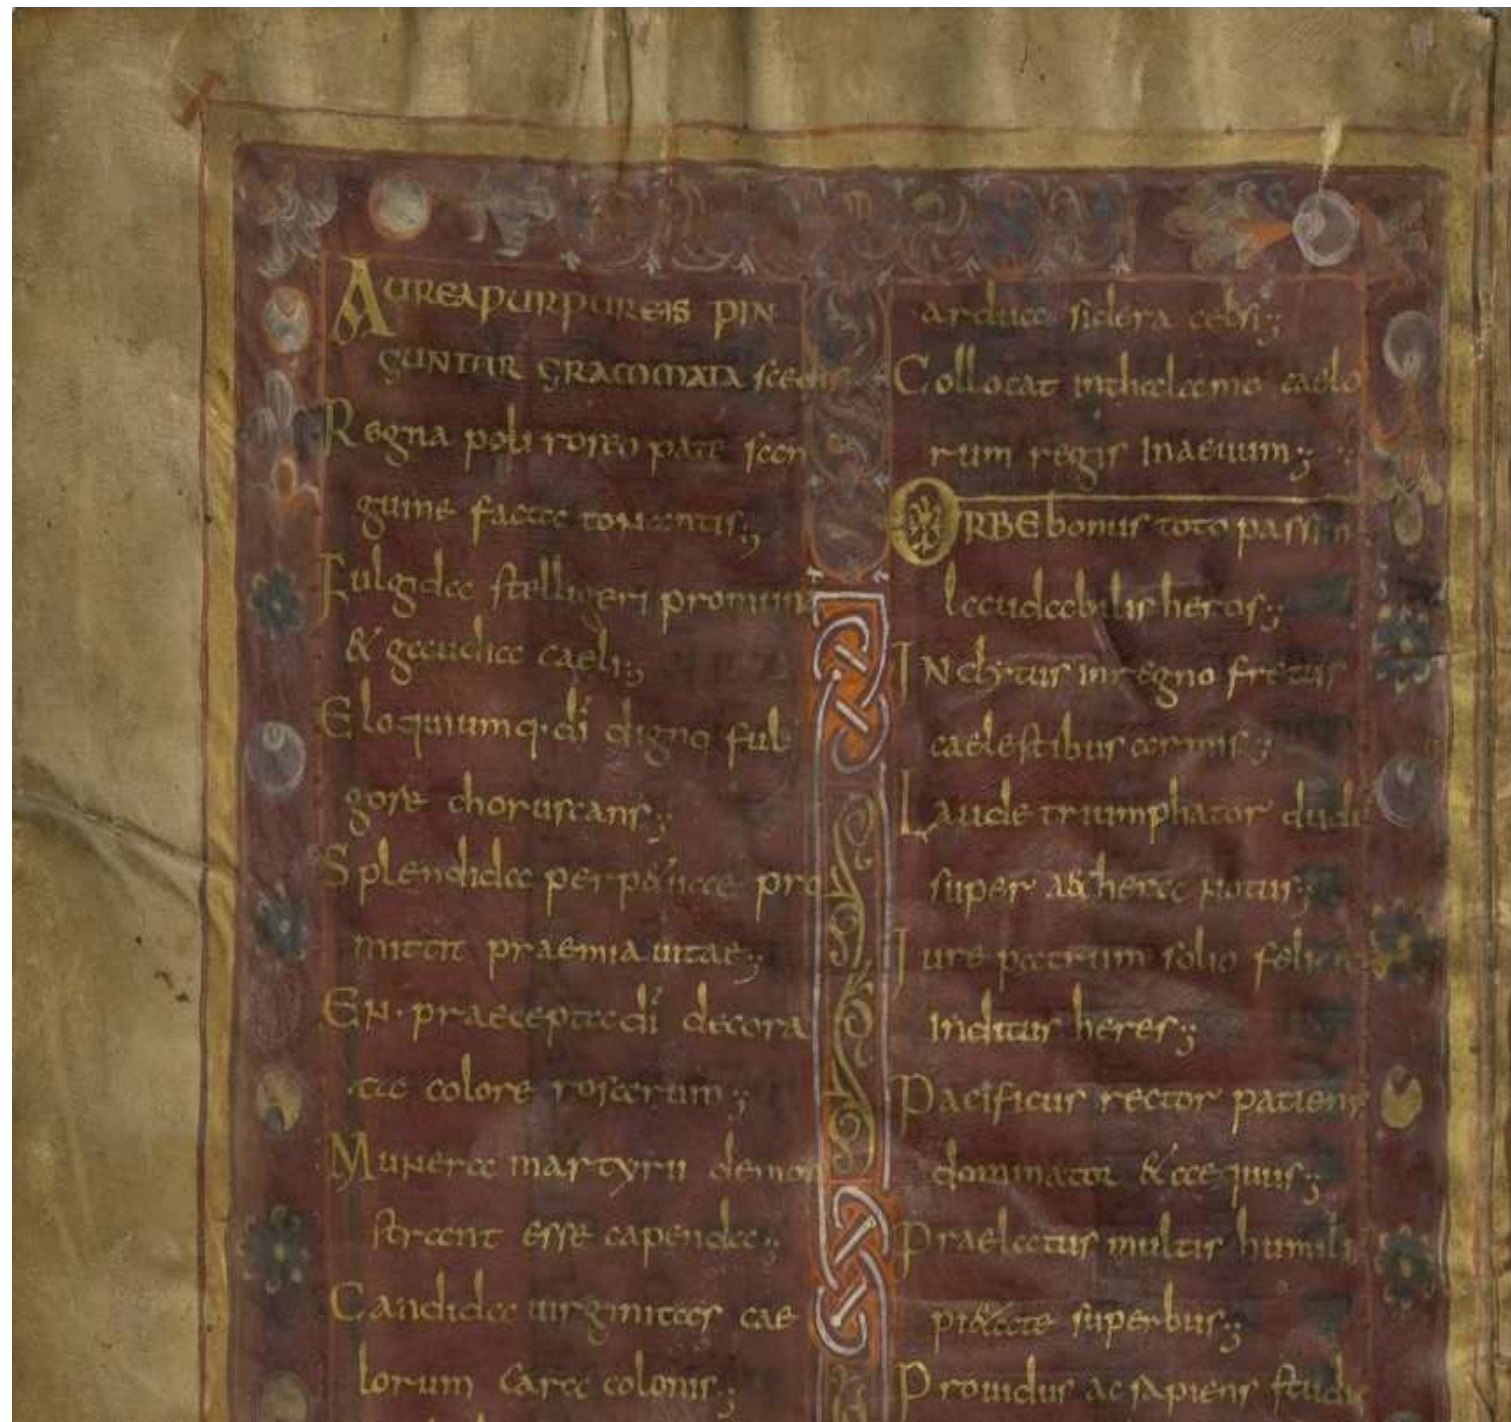 AUREA PURPUREIS PIN
GUNTUR GRAMMATA scedis
Regna poli roseo pate san
guine facta tonantis;
Fulgida stelligeri promunt
& gaudia caeli;
Eloquiumq· di digno ful
gore choruscans;
Splendida perp&uae pro
mittit praemia uitae;
EN· praecepta di decora
ta colore rosarum;
Munera martyrii demon
strant esse capenda;
Candida uirginitas cae
lorum cara colonis;
ardua sidera celsi;
Collocat in thalamo caelo
rum regis in aeuum;
ORBE bonus toto passim
laudabilis heros;
INclytus in regno fretus
caelestibus armis;
Laude triumphator dudu
super a&hera notus;
Jure patrum solio felicit
inditus heres;
Pacificus rector patiens
dominator & aequus;
Praelatus multis humili
pi&ate superbus;
Prouidus ac sapiens studi